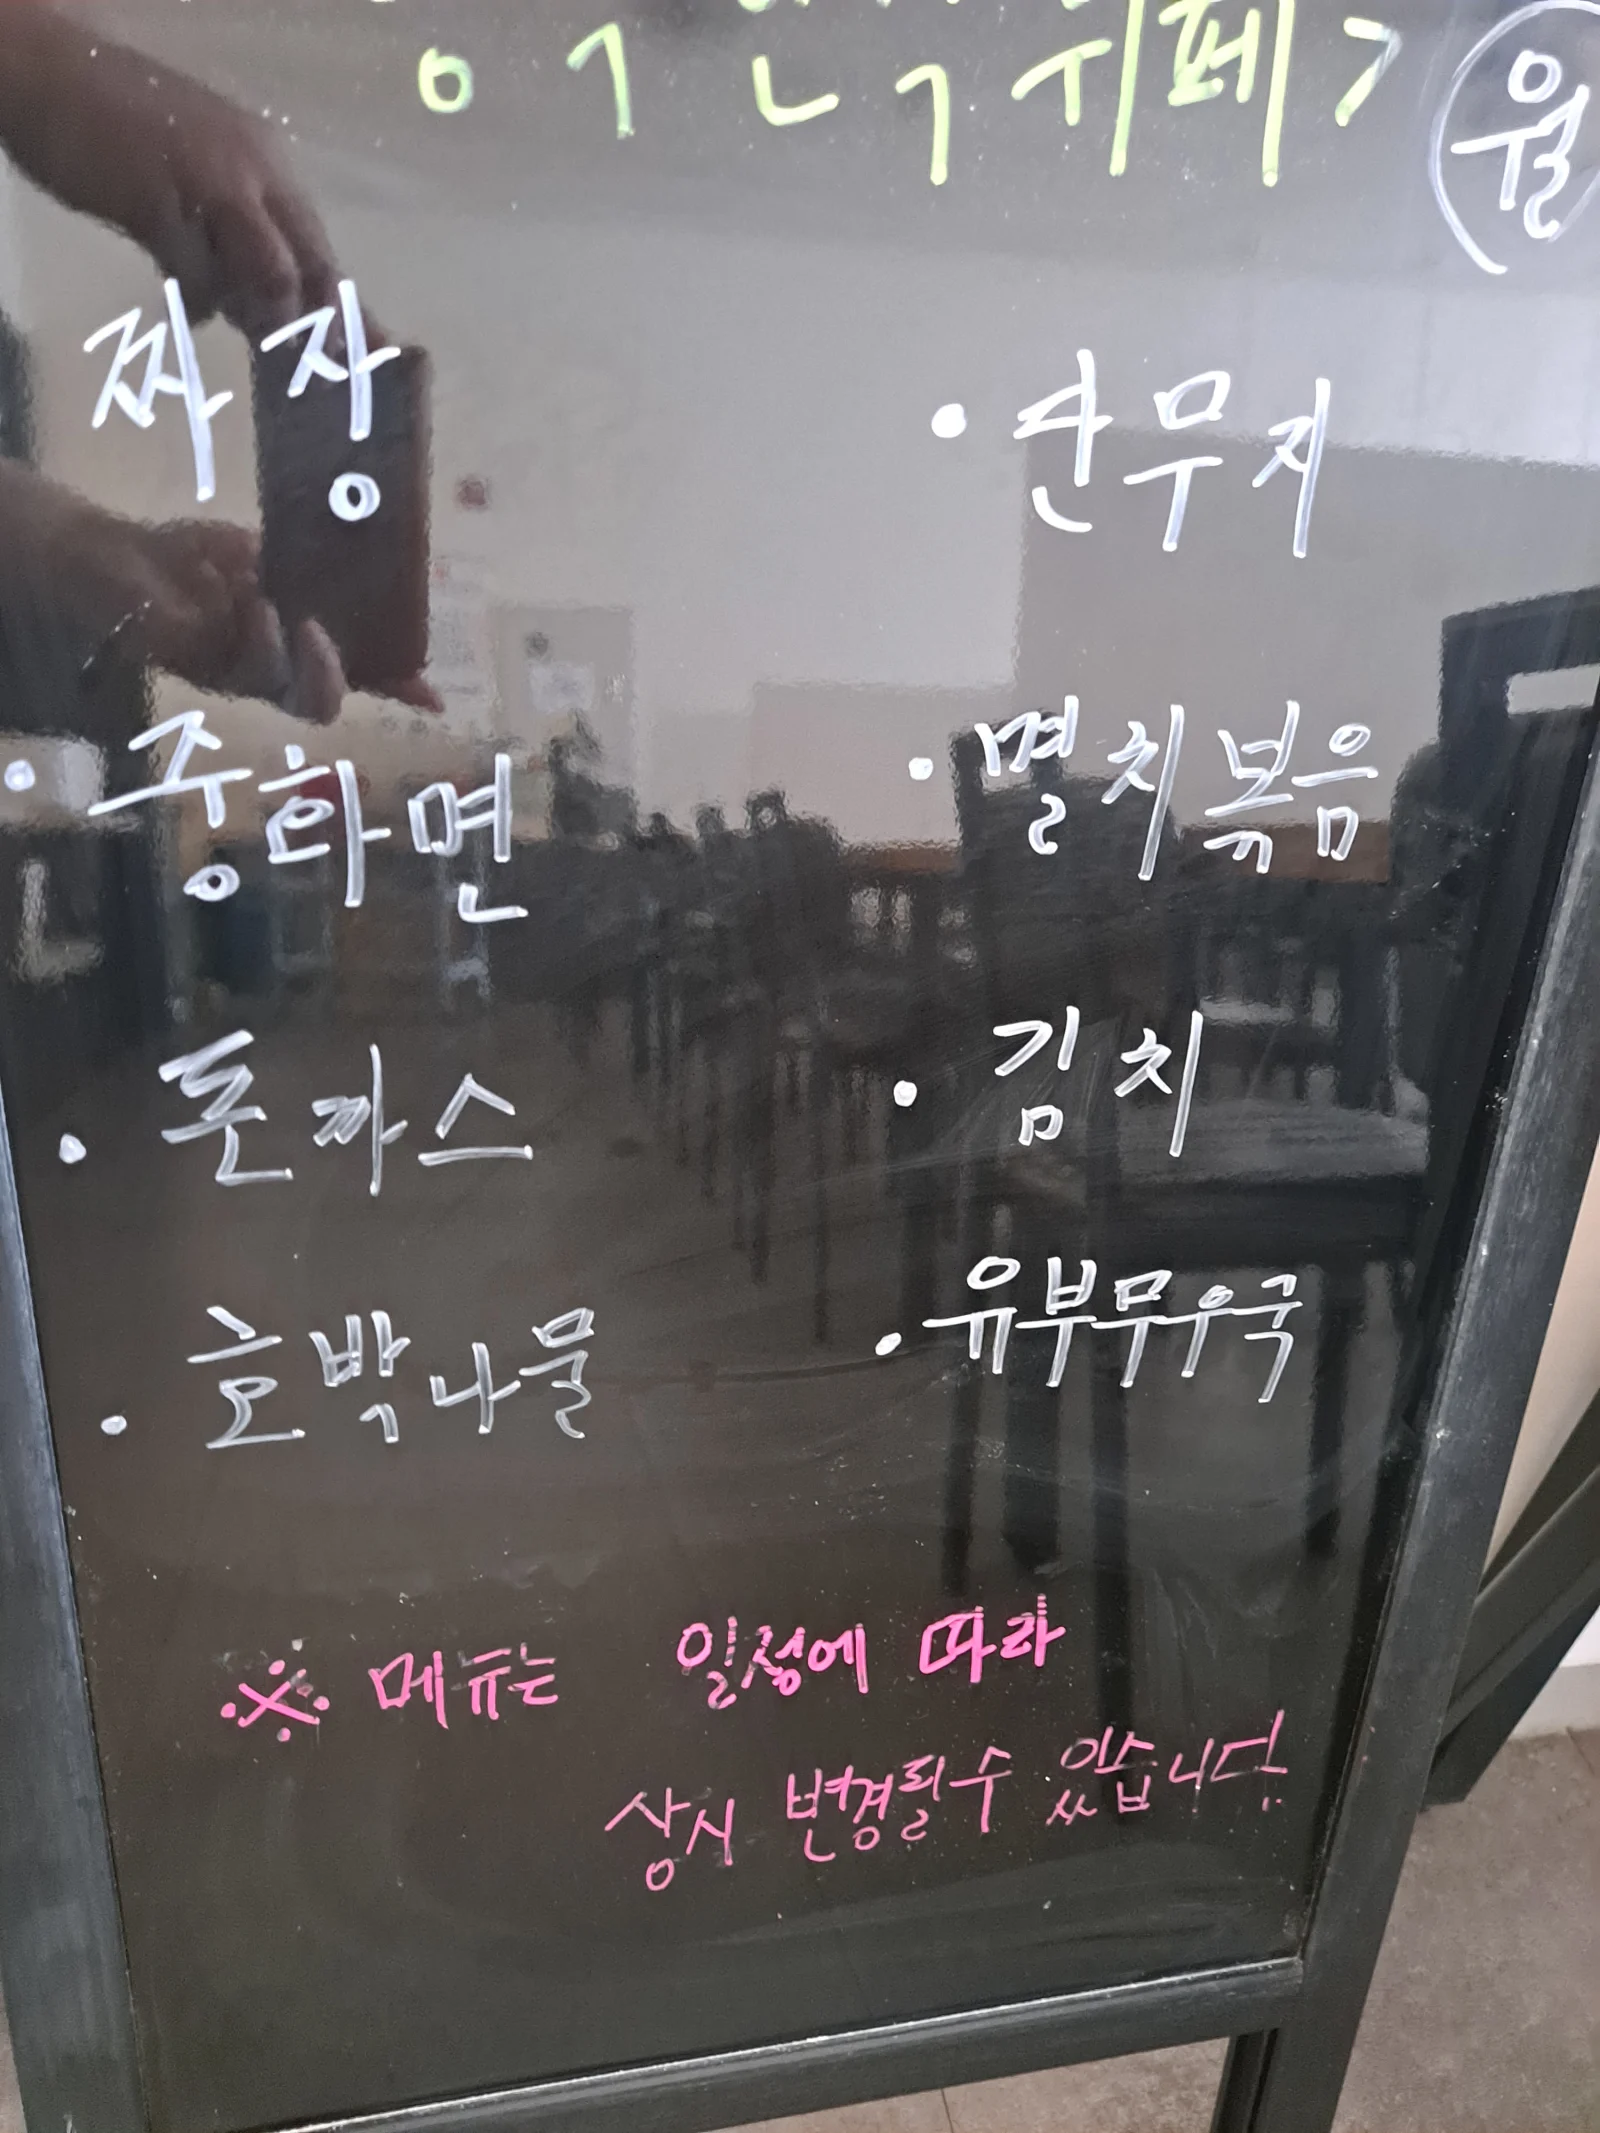 월
짜장
• 단무지
• 중화면
• 멸치볶음
• 돈까스
• 김치
• 호박나물
• 유부무우국
※ 메뉴는 일정에 따라
상시 변경될수 있습니다.